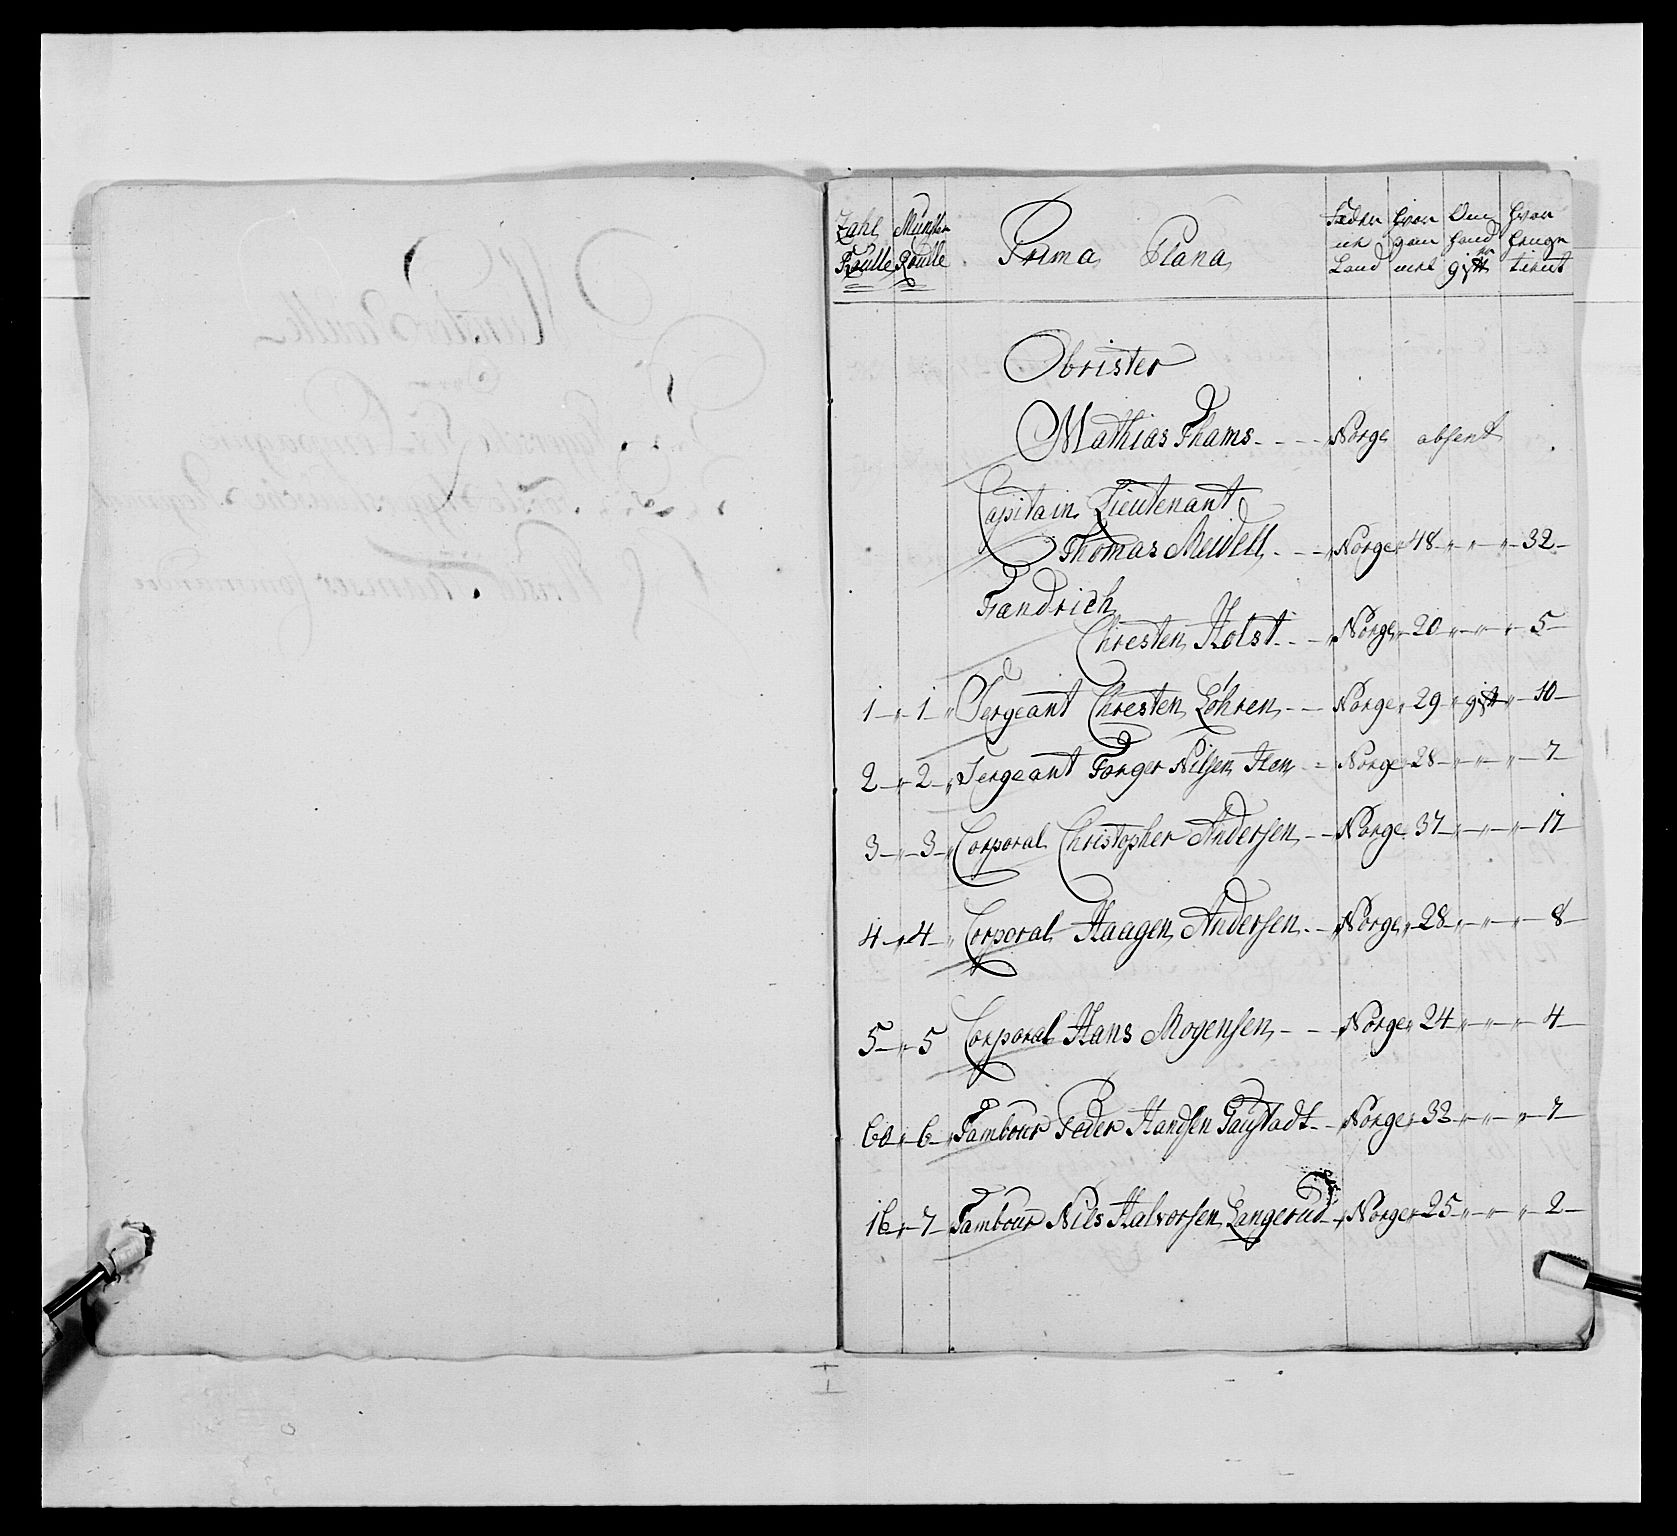 Zahl Roulle
Munster Roulle
Prima Plana
Fæderne Land
hvor gam̄el
Om hand er gift
hvor længe tient
Obrister
Mathias Thams - - - Norge absent
Capitain Lieutenant
Thomas Meidell - - - Norge 48 " " 32
Fændrich
Chresten Holst - - Norge 20 " " 5
1 1 Sergeant Chresten Löhren - - Norge 29 gift 10
2 2 Sergeant Torger Nilsen - Norge 28 " " 7
3 3 Corporal Christopher Andersen - - Norge 37 " " 17
4 4 Corporal Haagen Andersen - - Norge 28 " " 8
5 5 Corporal Hans Mogensen - - Norge 24 " " 4
60 6 Tambour Peder Handsen - Norge 32 " " 7
16 7 Tambour Nils Halvorsen Langerud Norge 25 " " 2